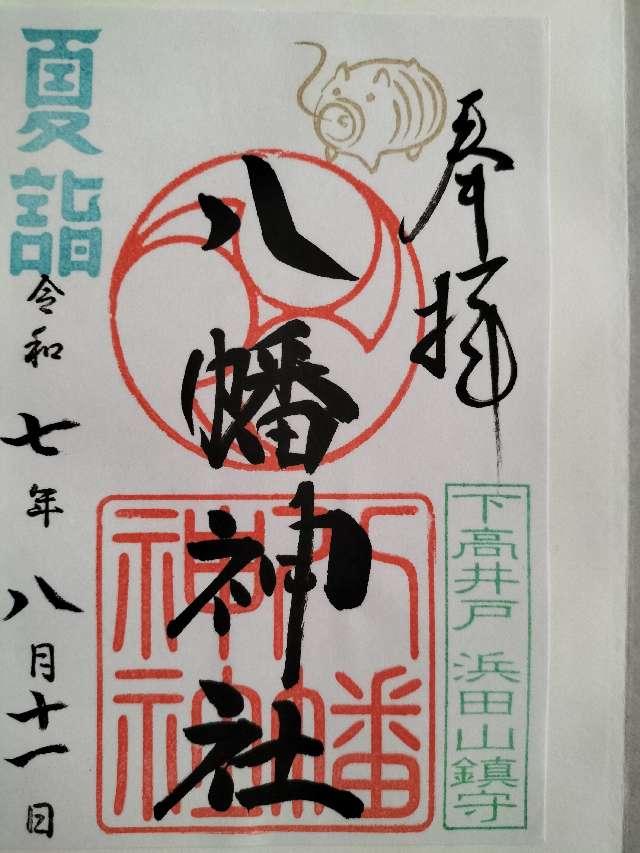 奉拝
下高井戸 浜田山鎮守
八幡神社
八幡神社
夏詣
令和七年八月十一日